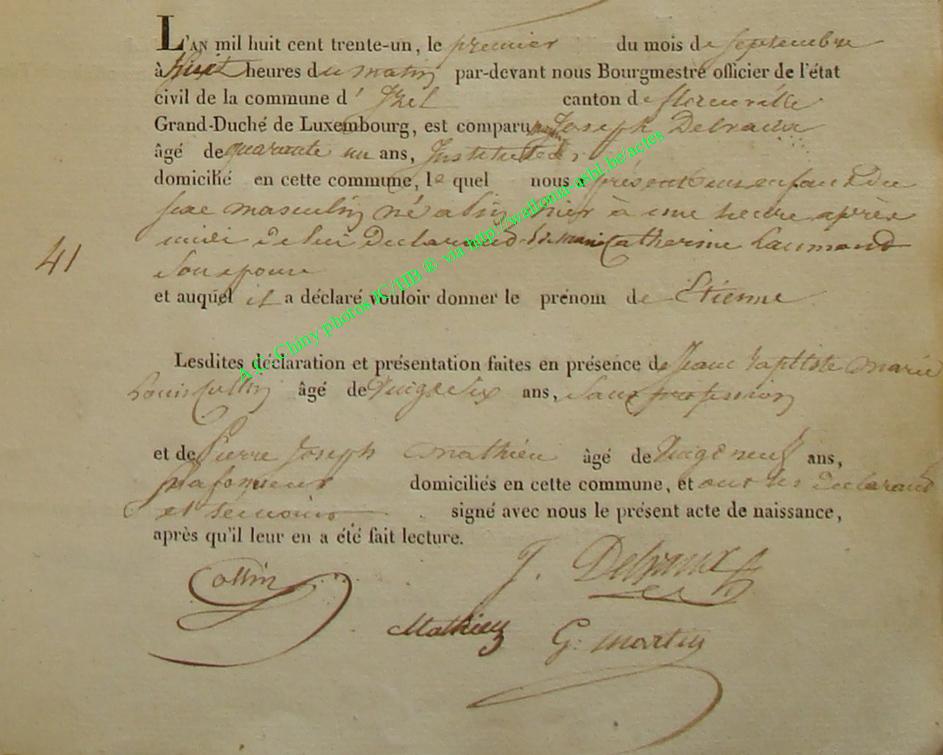 L'AN mil huit cent trente-un, le premier du mois de septembre
à huit heures du matin par-devant nous Bourgmestre officier de l'état
civil de la commune d' Izel canton de florenville
Grand-Duché de Luxembourg, est comparu Joseph Delvaux
âgé de quarante un ans, Instituteur
domicilié en cette commune, le quel nous a présenté un enfant du
sexe masculin né a Izel hier à une heure après
midi de lui Declarant et de marie Catherine Laumond
Son epouse
41
et auquel il a déclaré vouloir donner le prénom de Etienne
Lesdites déclaration et présentation faites en présence de Jean baptiste marie
Louis Collin âgé de vingt six ans, Sans profession
et de Pierre Joseph mathieu âgé de vingt neuf ans,
plafonneur domiciliés en cette commune, et ont les declarant
et temoins signé avec nous le présent acte de naissance,
après qu'il leur en a été fait lecture.
Collin J. Delvaux
Mathieu G. martin
A.E. Chiny photos IC/HB ® via http://wallonia-asbl.be/actes